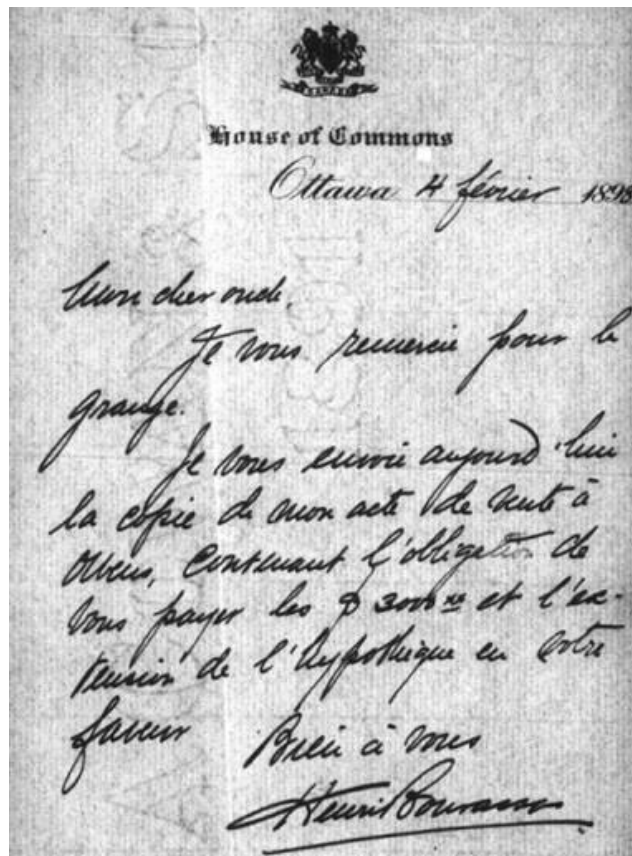 House of Commons
Ottawa 4 février 1898
Mon cher oncle,
Je vous remercie pour la
grange.
Je vous envoie aujourd'hui
la copie de mon acte de vente à
Owens, contenant l'obligation de
vous payer les $3000.00 et l'ex-
tension de l'hypothèque en votre
faveur
Bien à vous
Henri Bourassa